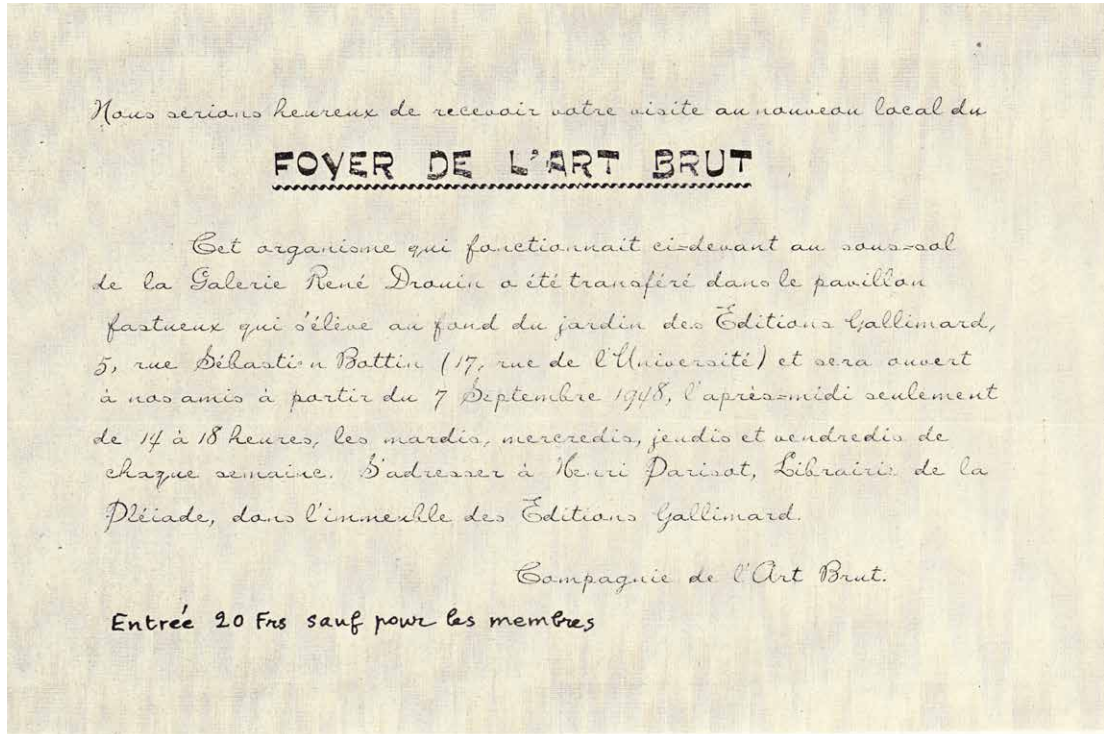 Nous serions heureux de recevoir votre visite au nouveau local du
FOYER DE L'ART BRUT
Cet organisme qui fonctionnait ci=devant au sous=sol
de la Galerie René Drouin a été transféré dans le pavillon
fastueux qui s'élève au fond du jardin des Editions Gallimard,
5, rue Sébastien Bottin (17, rue de l'Université) et sera ouvert
à nos amis à partir du 7 Septembre 1948, l'après=midi seulement
de 14 à 18 heures, les mardis, mercredis, jeudis et vendredis de
chaque semaine. S'adresser à Henri Parisot, Librairie de la
Pléiade, dans l'immeuble des Editions Gallimard.
Compagnie de l'Art Brut.
Entrée 20 Frs sauf pour les membres